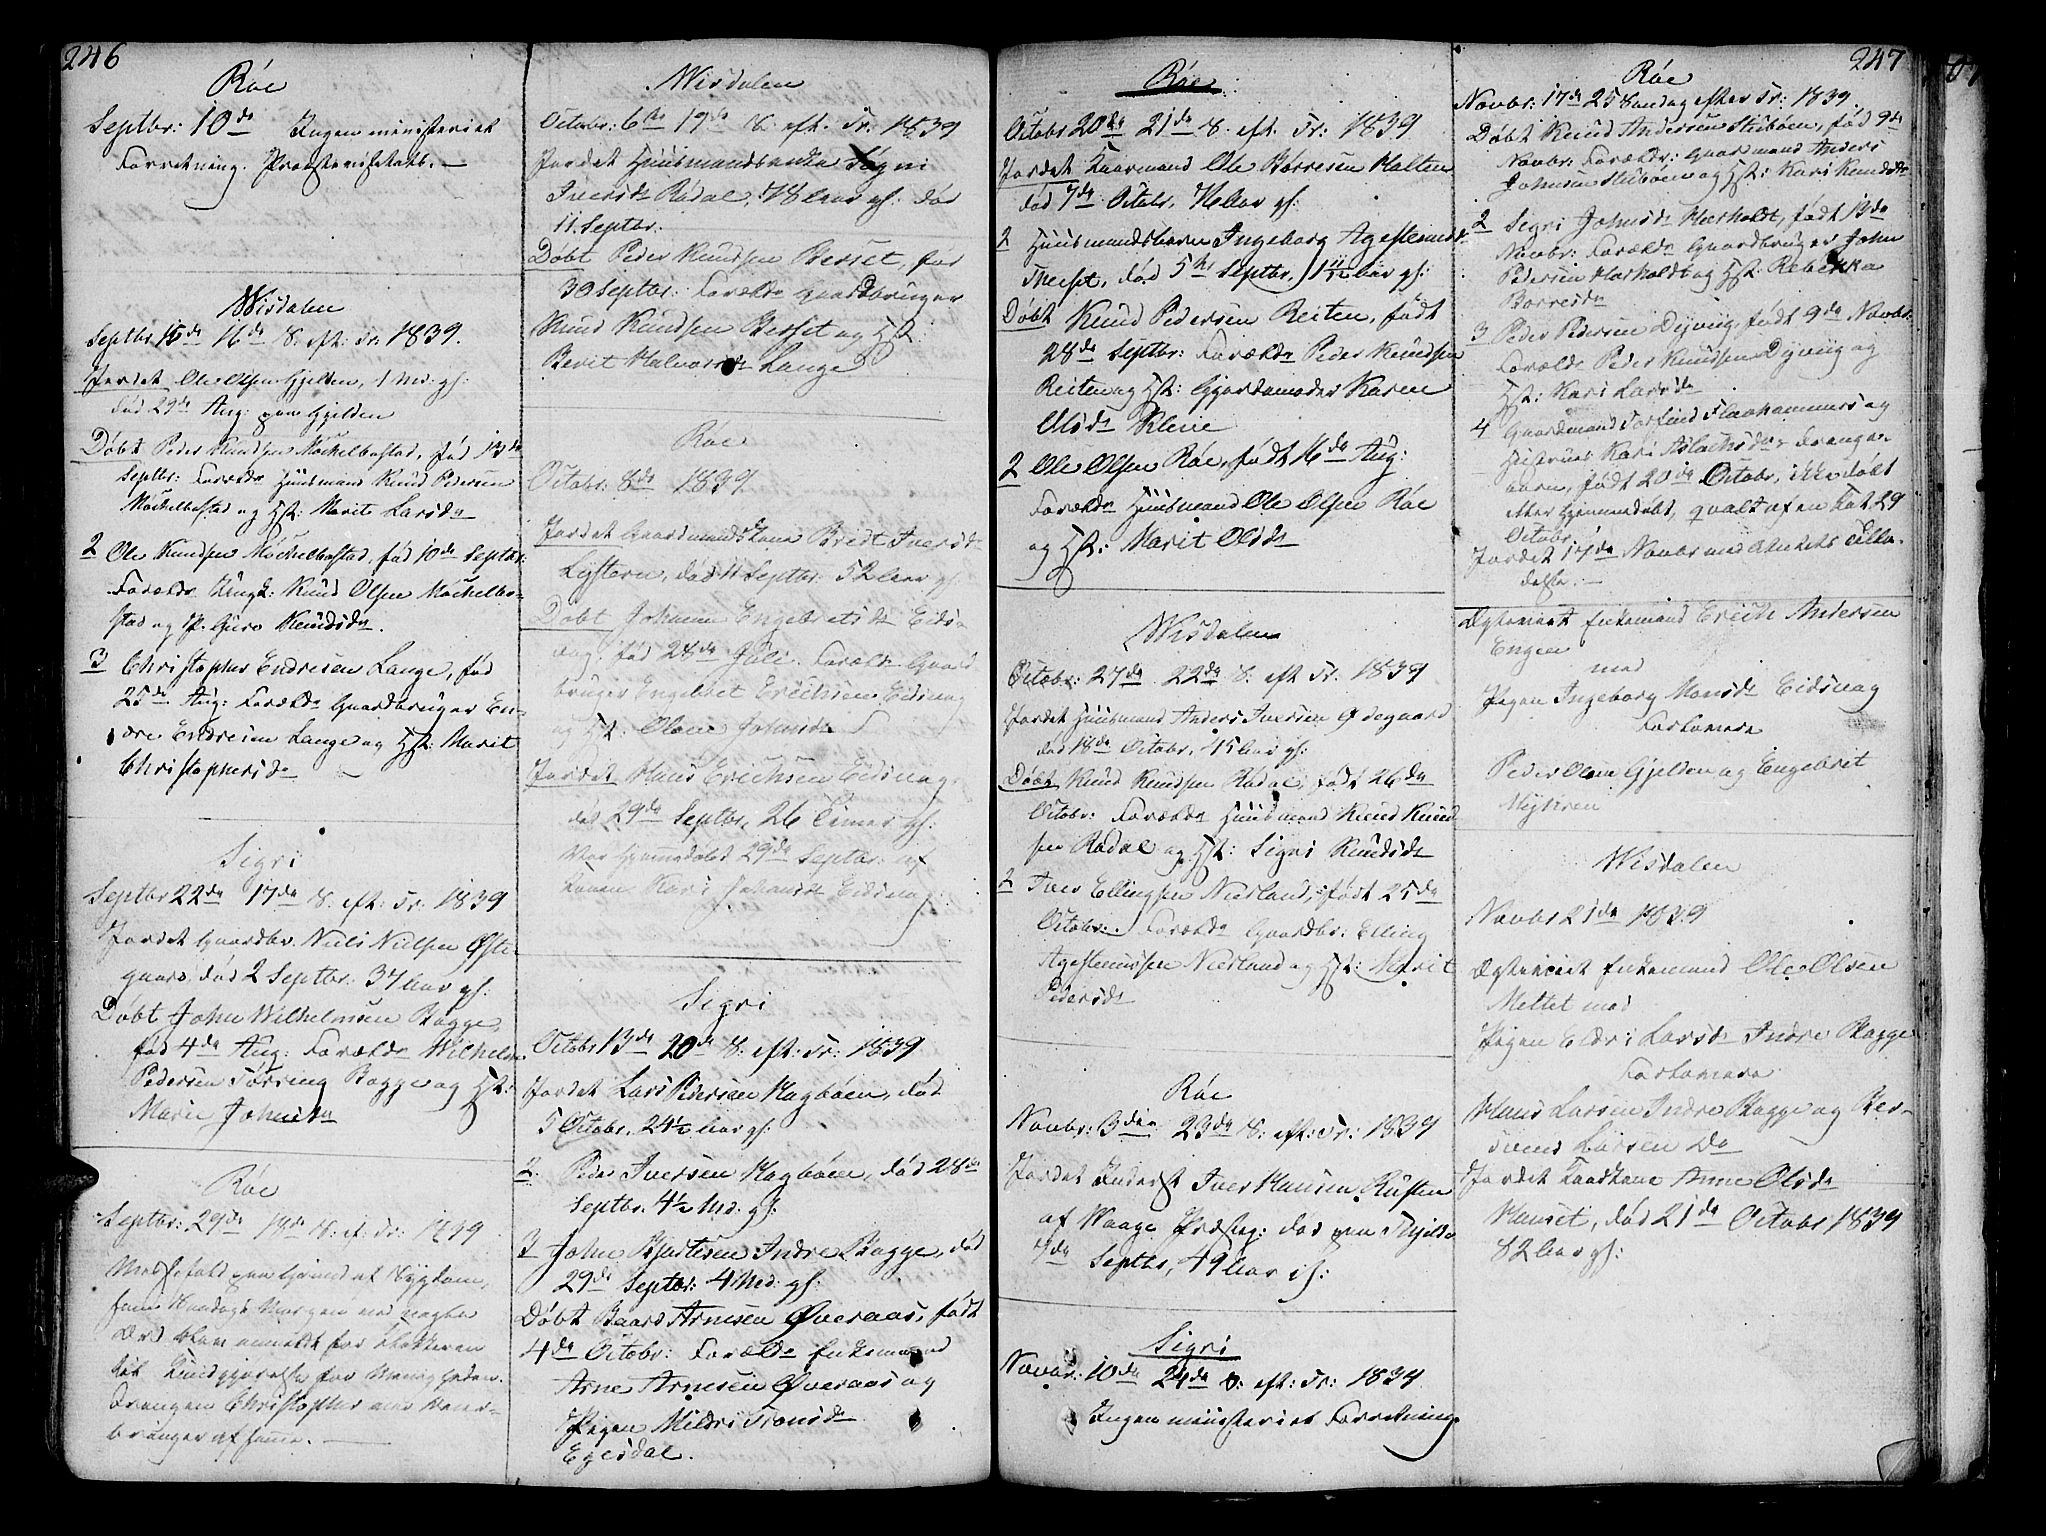 246
Röe
Septbr: 10de Ingen ministeriel
Forretning.
Wisdalen
Septbr 15de 16de S. eft: Tr: 1839.
Jordet Ole Olsen Gjelden, 1 Md: gl:
død 29de Aug: paa Gjelden
Döbt Peder Knudsen Möckelbostad, fød 13de
Septbr: Forældre Huusmand Knud Pedersen
Möckelbostad og Hst: Marit Larsdr
2 Ole Knudsen Möckelbostad, fød 10de Septbr:
Forældre Ungk: Knud Olsen Möckelbo-
stad og P. Guro Knudsdr.
3 Christopher Endresen Lange, fød
25de Aug: Forældre Gaardbruger En-
dre Endresen Lange og Hst: Marit
Christophersdr
Sigri
Septbr 22de 17de S. eft: Tr: 1839
Jordet Gaardbr. Niels Nielsen Øste-
gaard død 2 Septbr. 37 Aar gl:
Döbt John Wilhelmsen Bogge,
fød 4de Aug: Forældre Wilhelm
Pedersen Tørring Bogge og Hst:
Marie Johnsdr
Röe
Septbr: 29de 18de S. ef. Tr: 1839
Messefald paa Grund af Sygdom,
Drengen Christopher
bringer af samme.
Wisdalen
Octobr: 6te 19de S. eft. Tr: 1839
Jordet Huusmandsenke Sigri
Iversdr Rödal, 78 Aar gl: død
11. Septbr.
Döbt Peder Knudsen Berset, fød
30 Septbr: Forældre Gaardbruger
Knud Knudsen Berset og Hst:
Berit Halvorsdr Lange
Röe
Octobr: 8de 1839
Jordet Gaardmandskone Bridt Iversdr
död 11 Septbr: 52 Aar gl:
Döbt Johanne Engebretsdr Eids-
vag. fød 28de Juli. Forældre Gaard-
bruger Engebret Erichsen Eidsvag
og Hst: Olene Johnsdr
Jordet Hans Erichsen Eidsvag
död 29de Septbr, 26 Timer gl:
Var hjemmedöbt 29de Septbr: af
Konen Kari Johansdr Eidsvag.
Sigri
Octobr 13de 20de S. eft: Tr: 1839
Jordet Lars Pedersen Hagböen, död
5 Octobr. 24½ Aar gl:
2. Peder Iversen Hagböen, död 28de
Septbr. 4½ Md: gl:
3 John Bjertesen Indre Bogge, död
29de Septbr: 4 Md: gl:
Döbt Baard Arnesen Øveraas, födt
4de Octobr: Forældre Enkemand
Arne Arnesen Øveraas og
Pigen Mildri Tronsdr
Eijesdal.
247
Röe
Octobr 20de 21de S. eft. Tr: 1839
Jordet Kaarmand Ole Börresen Halten
död 7de Octobr, 76 Aar gl:
2 Huusmandsbarn Ingeborg Agestensdr
död 5te Septbr, 1 11/12 Aar gl:
Döbt Knud Pedersen Reiten, födt
28de Septbr: Forældre Peder Knudsen
Reiten og Hst: Gjordemoder Karen
Olsdr Kleve
2 Ole Olsen Röe, födt 16de Aug:
Forældre Huusmand Ole Olsen Röe
og Hst: Marit Olsdr
Wisdalen
Octobr: 27de 22de S. eft Tr: 1839
Jordet Huusmand Anders Iversen Ødegaard
död 18de Octobr, 45 Aar gl:
Döbt Knud Knudsen Rödal, födt 26de
Octobr: Forældre Huusmand Knud Knud-
sen Rödal og Hst: Sigri Knudsdr
2 Iver Ellingsen Nerland, födt 25de
Octobr: Forældre Gaardbr: Elling
Agestensen Nerland og Hst: Marit
Pedersdr
Röe
Novbr: 3die 23de S. eft: Tr: 1839
Jordet Inderst Iver Hansen Rusten
af Waage Præsteg: död paa
7de Septbr, 49 Aar gl:
Sigri
Novbr: 10de 24de S. eft: Tr: 1839
Ingen ministeriel Forretning.
Röe
Novbr: 17de 25 Söndag efter Tr: 1839.
Döbt Knud Andersen Stuböen, fød 9de
Novbr: Forældr: Gaardmand Anders
Johnsen Stuböen og Hst: Kari Knudsdr
2 Segri Johnsdr Horholdt, födt 13de
Novbr: Forældre Gaardbruger John
Pedersen Horholdt og Hst: Rebekka
Borresdr
3 Peder Pedersen Dyvig, födt 9de Novbr:
Forældr Peder Knudsen Dyviig og
Hst: Kari Larsdr
4 Gaardmand Torfind Flaahammers og
Hustrues Kari Aslachsdr Drenge-
barn, födt 20de Octobr, ikke döbt
eller hjemmedöbt, qvalt af en Kat 29
Octobr.
Jordet 17de Novbr med Amtets Tilla-
delse. —
Ægteviet Enkemand Erich Andersen
Engen
med
Pigen Ingeborg Monsdr Eidsvag
Forlovere
Peder Olsen Gjelden og Engebrit
Myhren
Wisdalen
Novbr 21de 1839
Ægteviet Enkemand Ole Olsen
Mettet med
Pigen Eldri Larsdr Indre Bogge
Forlovere
Hans Larsen Indre Bogge og Ber-
svend Larsen Do
Jordet Kaarkone Anne Olsdr
Hanset, död 21de Octobr 1839
82 Aar gl: